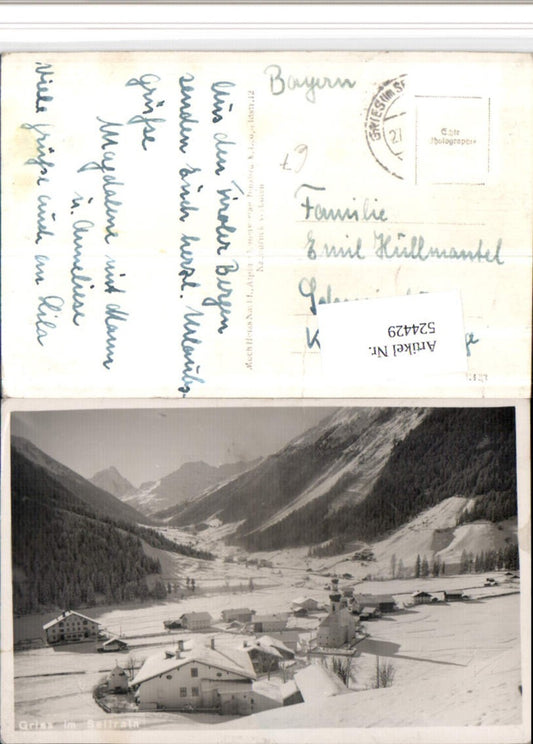 Aus den Tiroler Bergen
senden Euch herzl. Urlaubs-
grüße
Magdalena mit Mann
u. Annelien
Viele grüße auch an Lila
Bayern
GRIES IM S
Echte
Photographie
67
Familie
Emil Hüllmantel
Artikel Nr.
524429
Gries im Sellrain